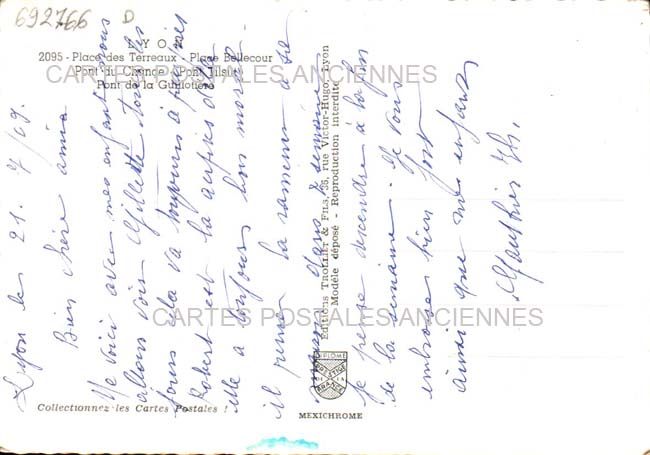 692766 D
LYON
2095 - Place des Terreaux - Place Bellecour
Pont du Change - Pont Tilsitt
Pont de la Guillotière
CARTES POSTALES ANCIENNES
Lyon le 21. 7/69.
Bien chère amie
Me voici avec mes enfants nous
allons voir Gillette tous les
jours cela va toujours à peu près
Robert est là auprès d'elle
elle a toujours bon moral
il pense la ramener à
dans 1 semaine
je pense descendre à la fin
de la semaine. Je vous
embrasse bien fort
ainsi que mes enfants
Gauthier
Editions TROLLIET & FILS, 36, rue Victor-Hugo, Lyon
Modèle déposé - Reproduction interdite
CARTES POSTALES ANCIENNES
DIPLOME
PRESTIGE
DE LA
FRANCE
Collectionnez les Cartes Postales !
MEXICHROME